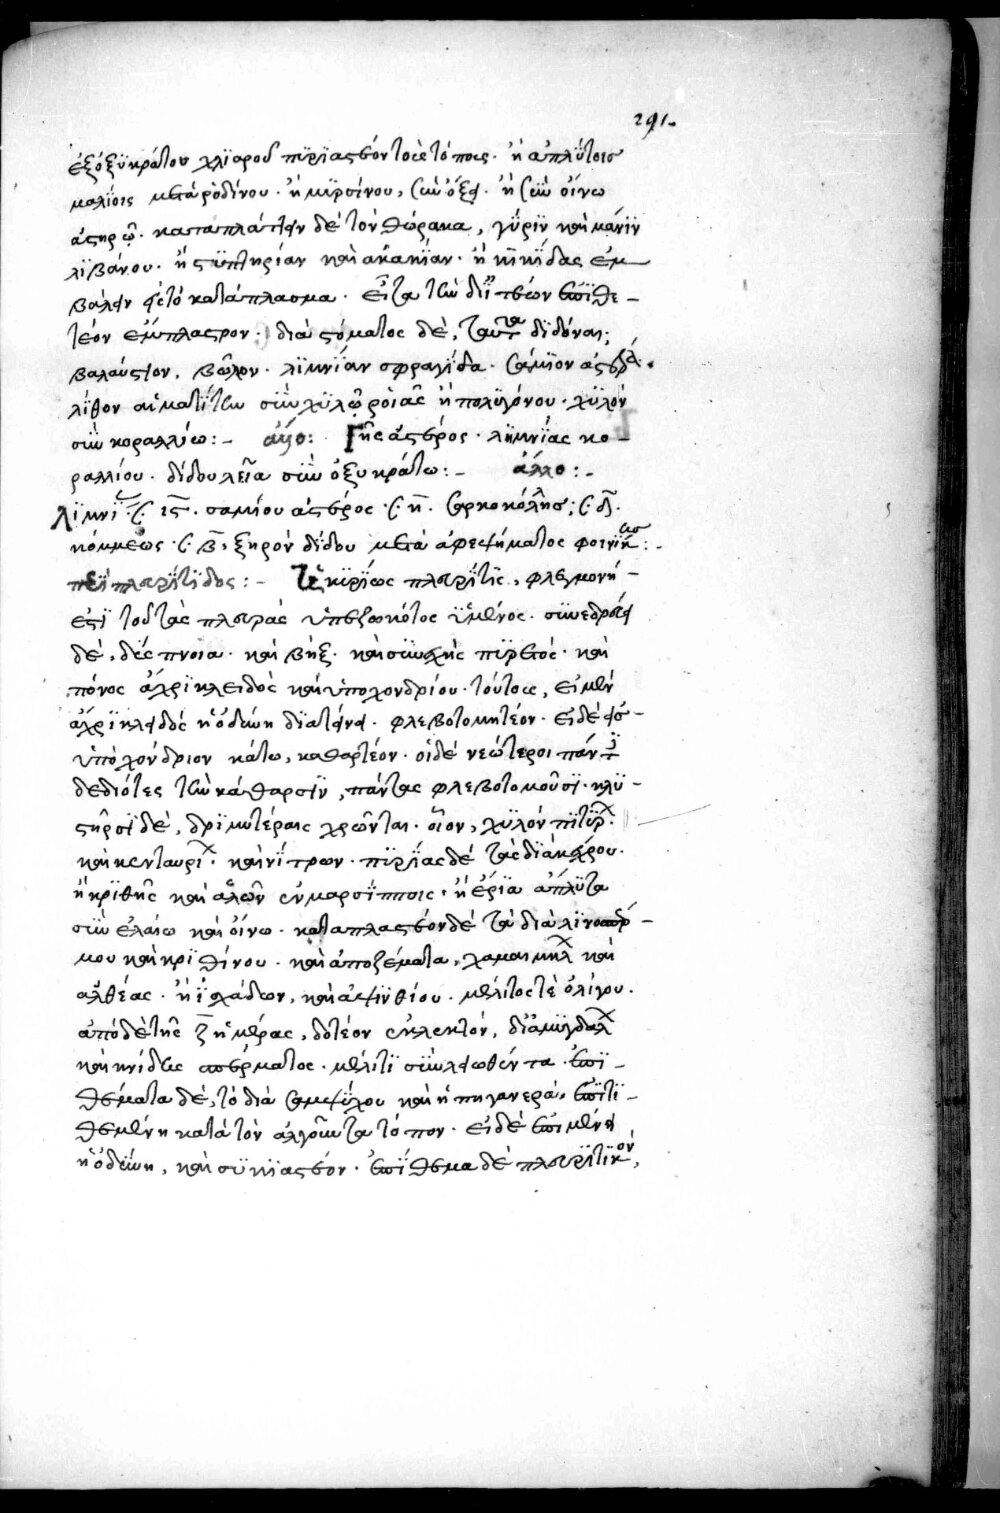 291.
ἐξ ὀξυκράτου χλιαροῦ πυριαστέον τοὺς τόπους. ἢ ἀπλύτοις
μαλίοις μετὰ ῥοδίνου. ἢ μυρσίνου, σὺν ὄξει. ἢ σὺν οἴνω
αὐστηρῶ. καταπλάττειν δὲ τὸν θώρακα, γύριν καὶ μάνιν
λιβάνου. ἢ στυπτηρίαν καὶ ἀκακίαν. ἢ κικίδας ἐμ
βαλεῖν εἰς τὸ κατάπλασμα. εἶτα τὴν δι' ἰτεῶν ἐπιθε -
τέον ἔμπλαστρον. διὰ στόματος δὲ, ταῦτα διδόναι;
βαλαύστιον. βῶλον. λιμνίαν σφραγίδα. σάμιον ἀστέρα.
λίθον αἱματίτην σὺν χυλῶ ῥοιᾶς ἢ πολυγόνου. χυλὸν
σὺν κοραλλίω :- ἄλλο: Γῆς ἀστέρος. λημνίας κο -
ραλλίου. δίδου λεῖα σὺν ὀξυκράτω :- ἄλλο :-
Λιμνί. ις. σαμίου ἀστέρος. η. σαρκοκόλλης; δ.
κόμμεως. β. ξηρὸν δίδου μετὰ ἀφεψήματος φοινίκων :-
περὶ πλευρίτιδος :- Ἡ κυρίως πλευρῖτις, φλεγμονή -
ἐστι τοῦ τὰς πλευρὰς ὑπεζωκότος ὑμένος. συνεδρεύει
δὲ, δύσπνοια. καὶ βήξ. καὶ συνεχὴς πυρετός. καὶ
πόνος ἄχρι κλειδὸς καὶ ὑποχονδρίου. τούτοις, εἰ μὲν
ἄχρι κλειδὸς ἡ ὀδύνη διατείνει. φλεβοτομητέον. εἰ δὲ εἰς -
ὑποχόνδριον κάτω, καθαρτέον. οἱ δὲ νεώτεροι πάντῃ
δεδιότες τὴν κάθαρσιν, πάντας φλεβοτομοῦσι. κλυ -
στῆρσι δὲ, δριμυτέραις χρῶνται. οἷον, χυλὸν πιτύρ.
καὶ κενταυρί. καὶ νίτρων. πυρίας δὲ τὰς διὰ κέχρου.
ἢ κριθῆς καὶ ἁλῶν ἐν μαρσίπποις. ἢ ἔρια ἄπλυτα
σὺν ἐλαίω καὶ οἴνω. καταπλαστέον δὲ τὰ διὰ λινοσπέρ -
μου καὶ κριθίνου. καὶ ἀποζέματα, χαμαιμήλ καὶ
ἀλθέας. ἢ ἰσχάδων, καὶ ἀψινθίου. μέλιτός τε ὀλίγου.
ἀπὸ δὲ τῆς ζ ἡμέρας, δοτέον ἐκλεικτόν, δι' ἀμυγδαλ
καὶ κνίδης σπέρματος. μέλιτι συνλειωθέντα. ἐπι -
θέματα δὲ, τὸ διὰ σαμψύχου καὶ ἡ πηγανερά, ἐπιτι -
θεμένη κατὰ τὸν ἀλγοῦντα τόπον. εἰ δὲ ἐπιμένει
ἡ ὀδύνη, καὶ συκιαστέον. ἐπίθεμα δὲ πλευριτικόν,